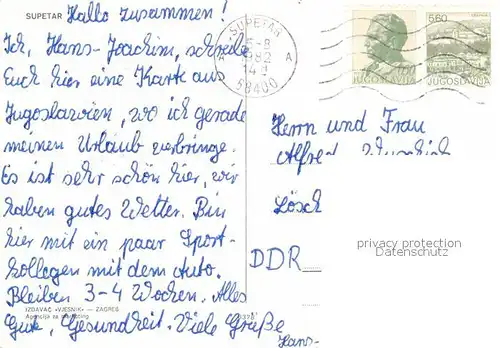 SUPETAR
Hallo zusammen!
Ich, Hans-Joachim, schreibe
Euch hier eine Karte aus
Jugoslawien, wo ich gerade
meinen Urlaub verbringe.
Es ist sehr schön hier, wir
haben gutes Wetter. Bin
hier mit ein paar Sport-
kollegen mit dem Auto.
Bleiben 3-4 Wochen. Alles
Gute, Gesundheit. Viele Grüße
Hans-
IZDAVAČ »VJESNIK« — ZAGREB
Agencija za marketing
SUPETAR
A A
58400
JUGOSLAVIJA
5.60
JUGOSLAVIJA
Herrn und Frau
Alfred
Lösch
DDR
privacy protection
Datenschutz